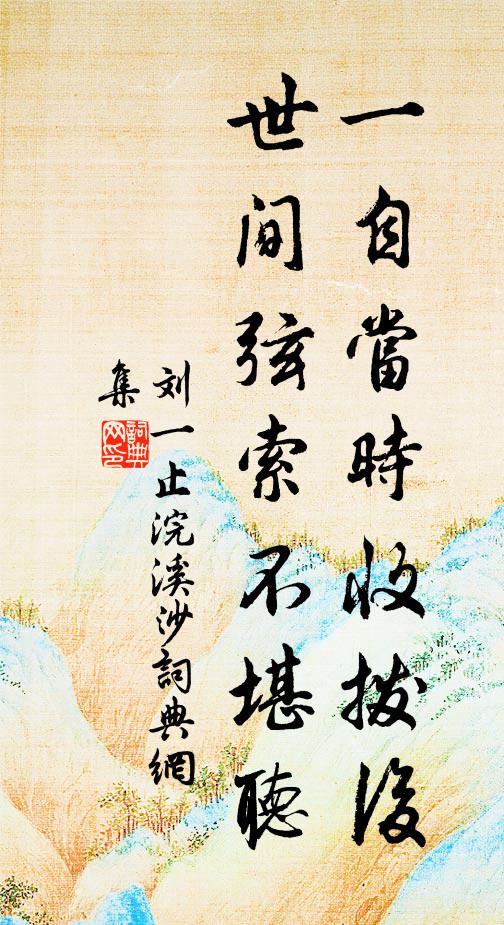 一自當時收撥後
世间弦索不堪聽
刘一止浣溪沙詞典網
集
詞典
网印